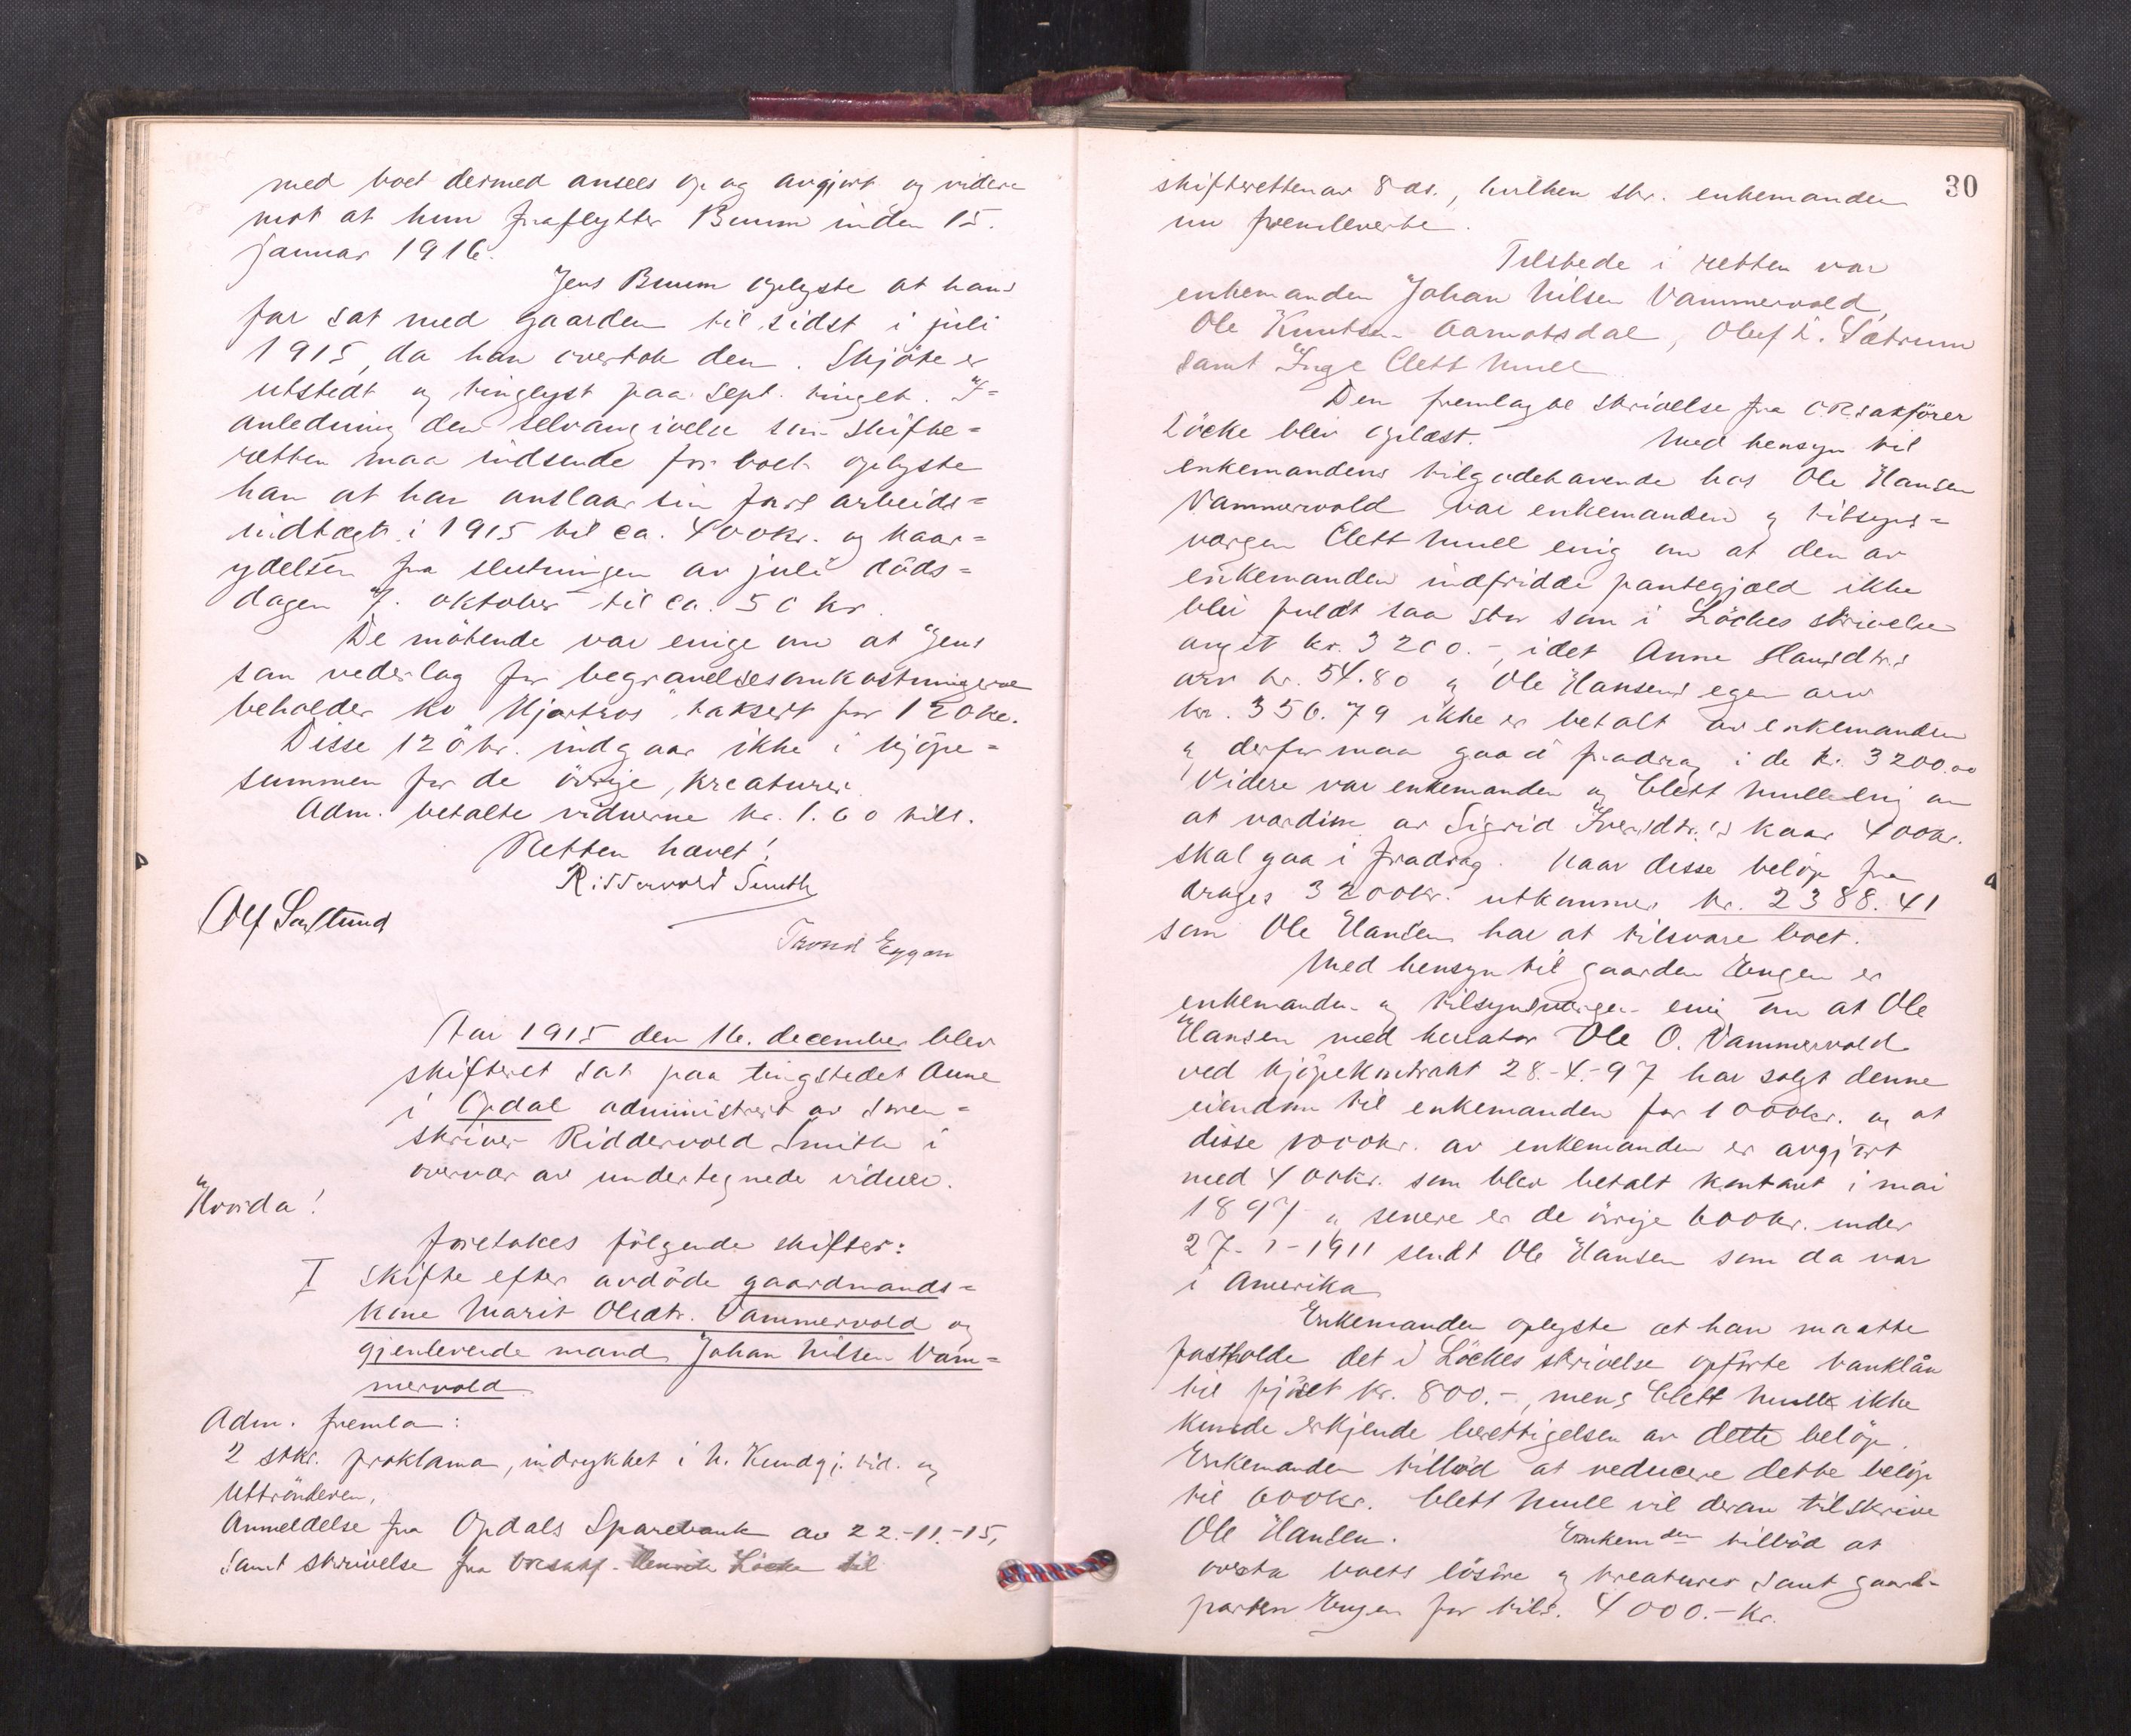 med boet dermed ansees op og avgjort og videre
mot at hun fraflytter Buum inden 15.
januar 1916.
Jens Buum oplyste at hans
far sat med gaarden til sidst i juli
1915, da han overtok den. Skjöte er
utstedt og tinglyst paa sept. tinget. I
anledning den selvangivelse som skifte=
retten maa indsende for boet oplyste
han at han anslaar sin fars arbeids=
indtægt i 1915 til ca. 400 kr. og kaar=
ydelsen fra slutningen av juli döds=
dagen 7. oktober til ca. 50 kr.
De mötende var enige om at Jens
som vederlag for begravelsesomkostningerne
beholder ko "Hjartros" taksert for 120 kr.
Disse 120 kr. indgaar ikke i kjöpe=
summen for de övrige kreaturer.
Adm. betalte vidnerne kr. 1.60 tils.
Retten hævet!
Riddervold Smith
Trond Eggan
Aar 1915 den 16. december blev
skifteret sat paa tingstedet Aune
i Opdal administrert av soren=
skriver Riddervold Smith i
overvær av undertegnede vidner.
Hvorda!
foretokes fölgende skifter:
I Skifte efter avdöde gaardmands=
kone Marit Olsdtr. Vammervold og
gjenlevende mand Johan Nilsen Vam=
mervold
Adm. fremla:
2 stkr. proklama, indrykket i N. Kundgj. tid. og
Uttrönderen,
Anmeldelse fra Opdals Sparebank av 22.-11.-15,
samt skrivelse fra Löcke til
30
skifteretten av 8 ds., hvilken skr. enkemanden
nu fremleverte.
Tilstede i retten var
enkemanden Johan Nilsen Vammervold,
Ole Knutsen Aamotsdal, Oluf L. Sætrum
samt Inge Clett Mull
Den fremlagte skrivelse fra O.R.sakförer
Löcke blev oplæst. Med hensyn til
enkemandens tilgodehavende hos Ole Hansen
Vammervold var enkemanden og tilsyns=
vergen Clett Mull enig om at den av
enkemanden indfridde pantegjæld ikke
blir fuldt saa stor som i Löckes skrivelse
angit kr. 3200.-, idet Anne Hansdtr.s
arv kr. 54.80 og Ole Hansens egen arv
kr. 356.79 ikke er betalt av enkemanden
og derfor maa gaa i fradrag i de kr. 3200.00
Videre var enkemanden og Clett Mull enig om
at værdien av Sigrid Iversdtr.s kaar 400 kr.
skal gaa i fradrag. Naar disse belöp fra
drages 3200 kr. utkommer kr. 2388.41
som Ole Hansen har at tilsvare boet.
Med hensyn til gaarden Engen er
enkemanden og tilsynsvergen enig om at Ole
Hansen med kurator Ole O. Vammervold
ved kjöpekontrakt 28.-4.-97 har solgt denne
eiendom til enkemanden for 1000 kr. og at
disse 1000 kr. av enkemanden er avgjort
med 400 kr. som blev betalt kontant i mai
1897 og senere er de övrige 600 kr. under
27-1-1911 sendt Ole Hansen som da var
i Amerika
Enkemanden oplyste at han maatte
fastholde det i Löckes skrivelse opförte banklån
til kr. 800.-, mens Clett Mull ikke
kunde erkjende berettigelsen av dette belöp.
Enkemanden tilböd at reducere dette belöp
til 600 kr. Clett Mull vil derom tilskrive
Ole Hansen. Enkemden tilböd at
overta boets lösöre og kreaturer samt gaard-
parten Engen for tils. 4000.- kr.